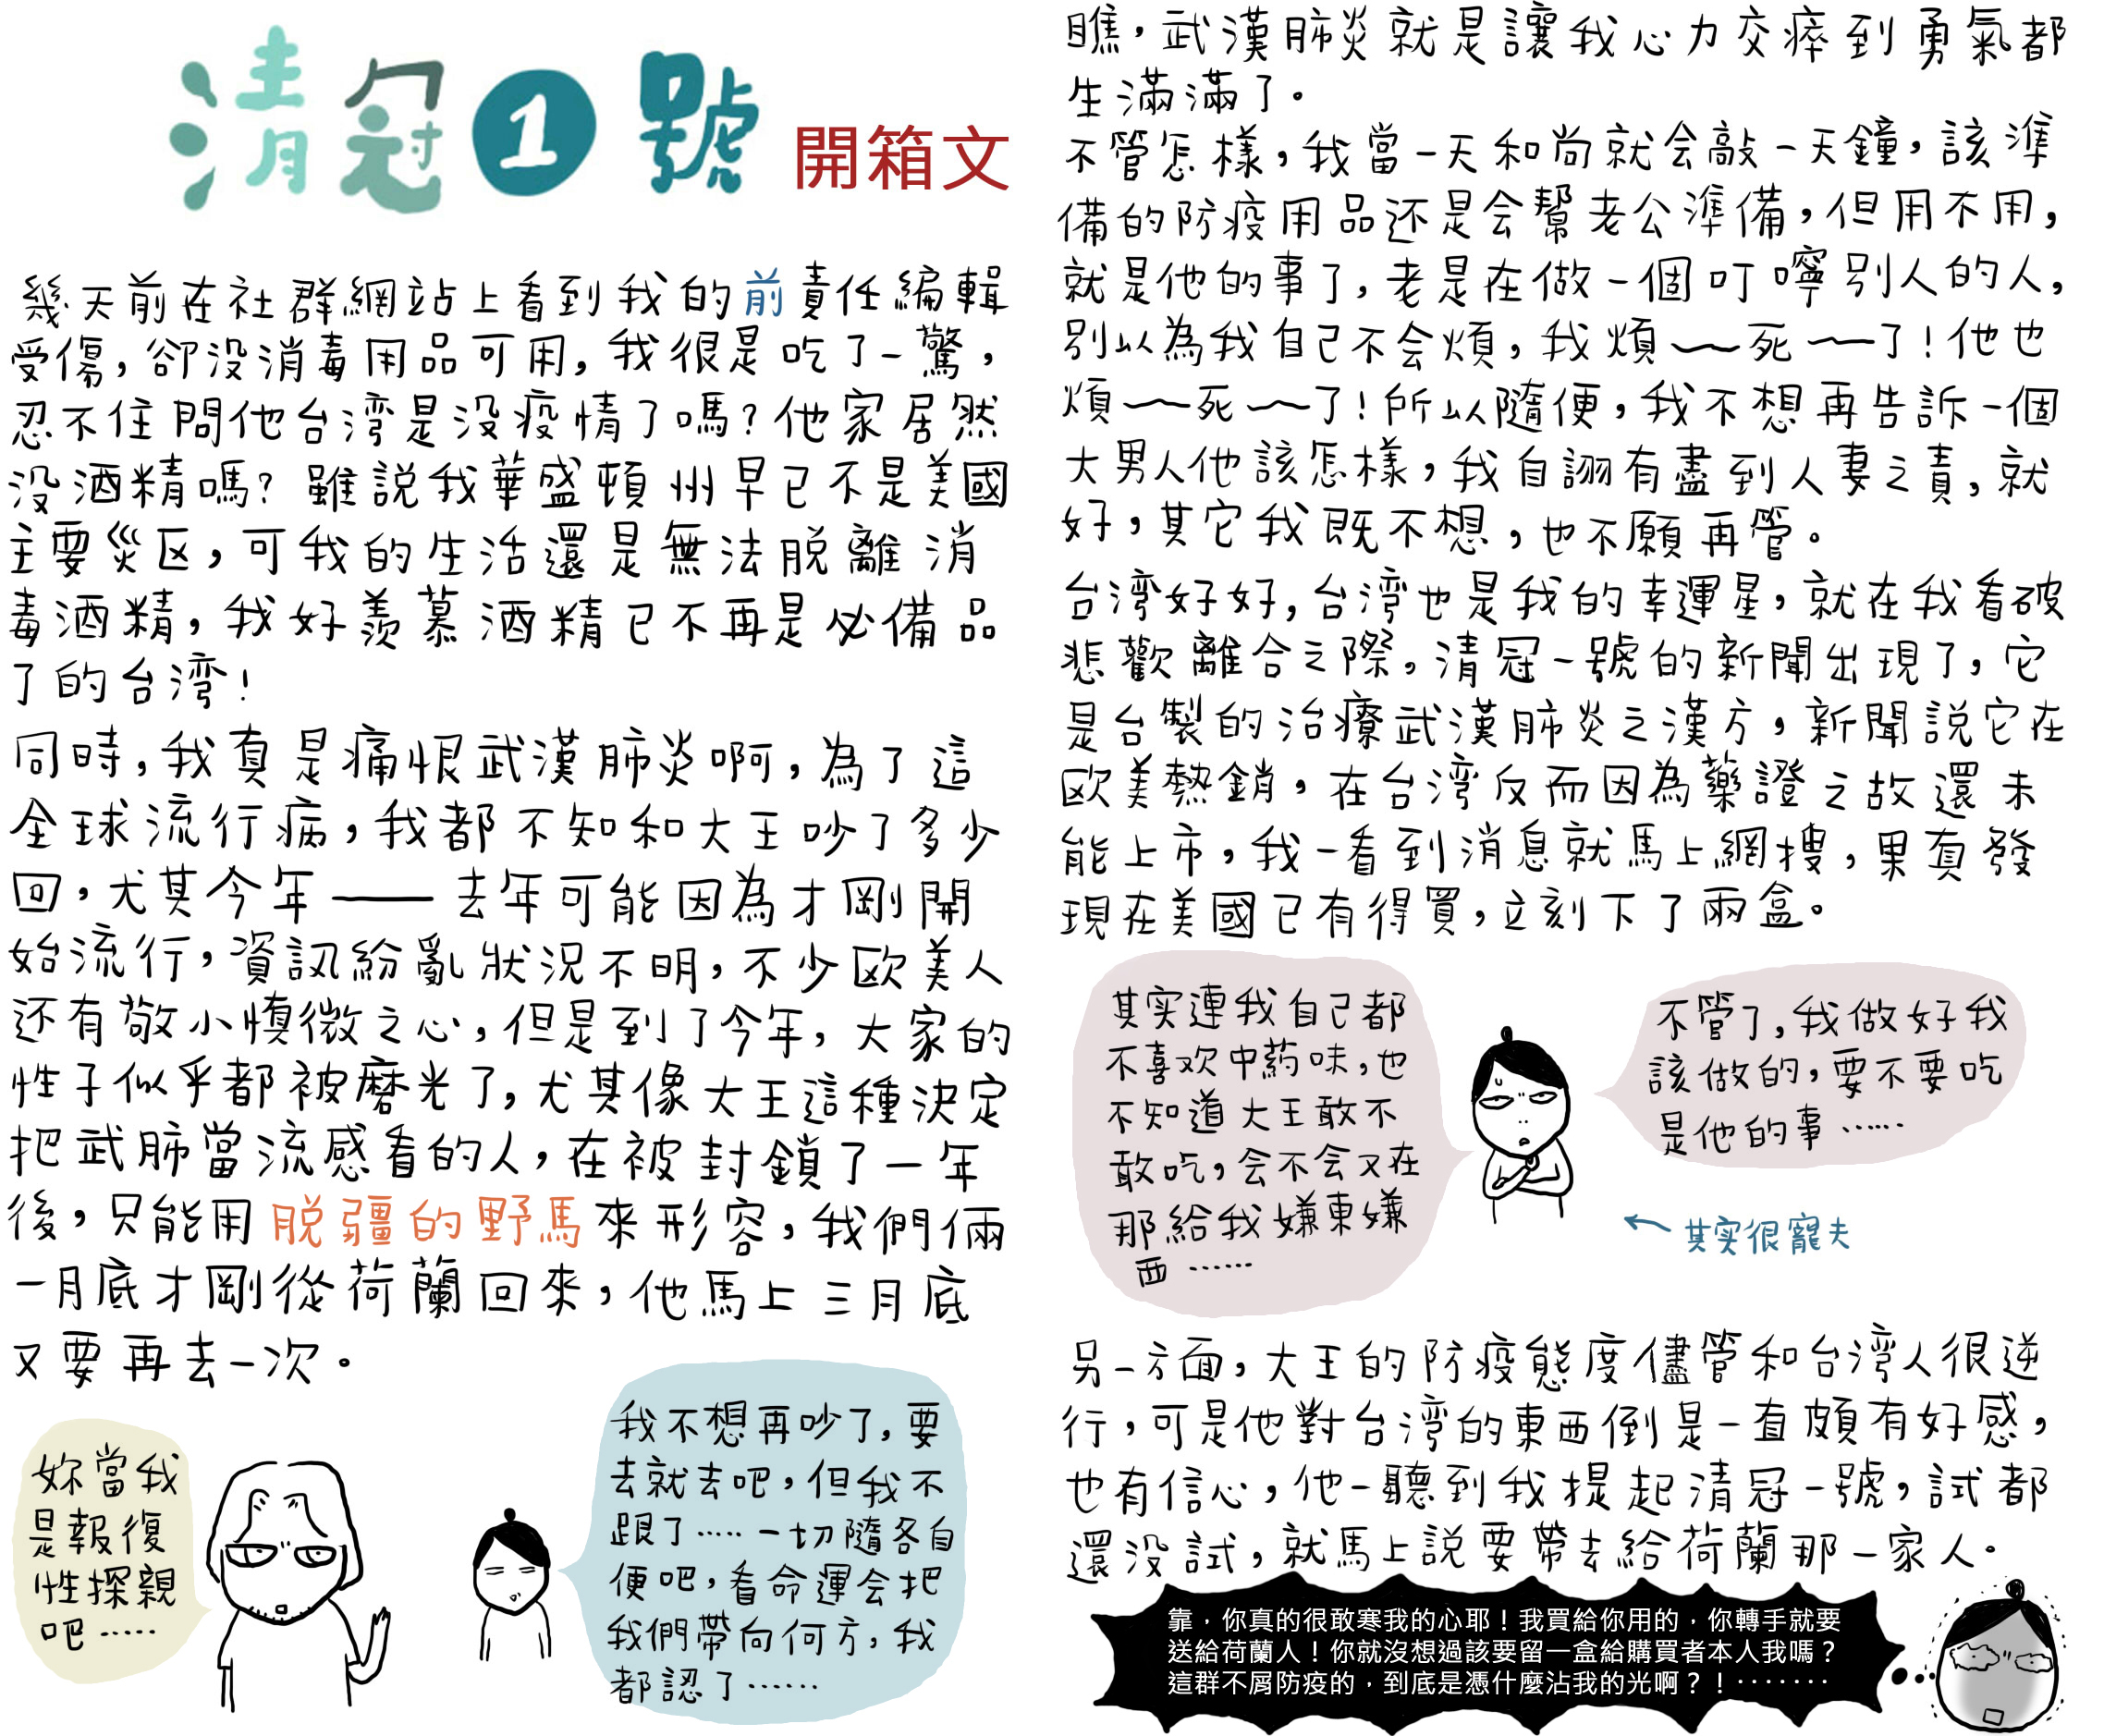 清冠1號 開箱文
幾天前在社群網站上看到我的前責任編輯
受傷，卻没消毒用品可用，我很是吃了一驚，
忍不住問他台湾是没疫情了嗎？他家居然
没酒精嗎？雖説我華盛頓州早已不是美國
主要災区，可我的生活還是無法脱離消
毒酒精，我好羨慕酒精已不再是必備品
了的台湾！
同時，我真是痛恨武漢肺炎啊，為了這
全球流行病，我都不知和大王吵了多少
回，尤其今年——去年可能因為才剛開
始流行，資訊紛亂狀況不明，不少欧美人
还有敬小慎微之心，但是到了今年，大家的
性子似乎都被磨光了，尤其像大王這種決定
把武肺當流感看的人，在被封鎖了一年
後，只能用脱疆的野馬來形容，我們倆
一月底才剛從荷蘭回來，他馬上三月底
又要再去一次。
妳當我
是報復
性探親
吧……
我不想再吵了，要
去就去吧，但我不
跟了……一切隨各自
便吧，看命運会把
我們帶向何方，我
都認了……
瞧，武漢肺炎就是讓我心力交瘁到勇氣都
生滿滿了。
不管怎樣，我當一天和尚就会敲一天鐘，該準
備的防疫用品还是会幫老公準備，但用不用，
就是他的事了，老是在做一個叮嚀別人的人，
別以為我自己不会煩，我煩～～死～～了！他也
煩～～死～～了！所以隨便，我不想再告訴一個
大男人他該怎樣，我自詡有盡到人妻之責，就
好，其它我既不想，也不願再管。
台湾好好，台湾也是我的幸運星，就在我看破
悲歡離合之際，清冠一號的新聞出現了，它
是台製的治療武漢肺炎之漢方，新聞説它在
欧美熱銷，在台湾反而因為藥證之故還未
能上市，我一看到消息就馬上網搜，果真發
現在美國已有得買，立刻下了兩盒。
其实連我自己都
不喜欢中药味，也
不知道大王敢不
敢吃，会不会又在
那給我嫌東嫌
西……
不管了，我做好我
該做的，要不要吃
是他的事……
←其实很寵夫
另一方面，大王的防疫態度儘管和台湾人很逆
行，可是他對台湾的東西倒是一直頗有好感，
也有信心，他一聽到我提起清冠一號，試都
還没試，就馬上説要帶去給荷蘭那一家人。
靠，你真的很敢寒我的心耶！我買給你用的，你轉手就要
送給荷蘭人！你就沒想過該要留一盒給購買者本人我嗎？
這群不屑防疫的，到底是憑什麼沾我的光啊？！‧‧‧‧‧‧‧